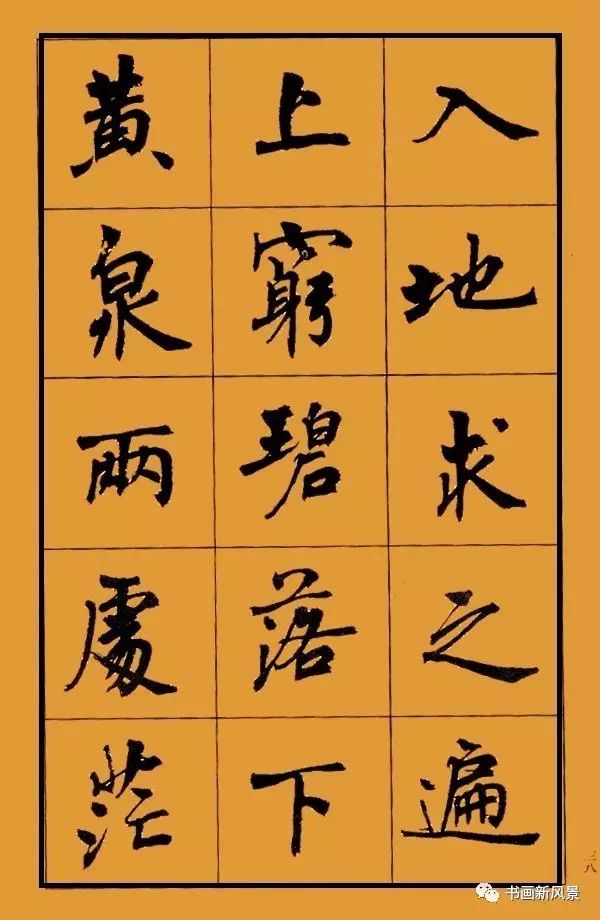 入地求之遍
上窮碧落下
黃泉兩處茫
三八
书画新风景